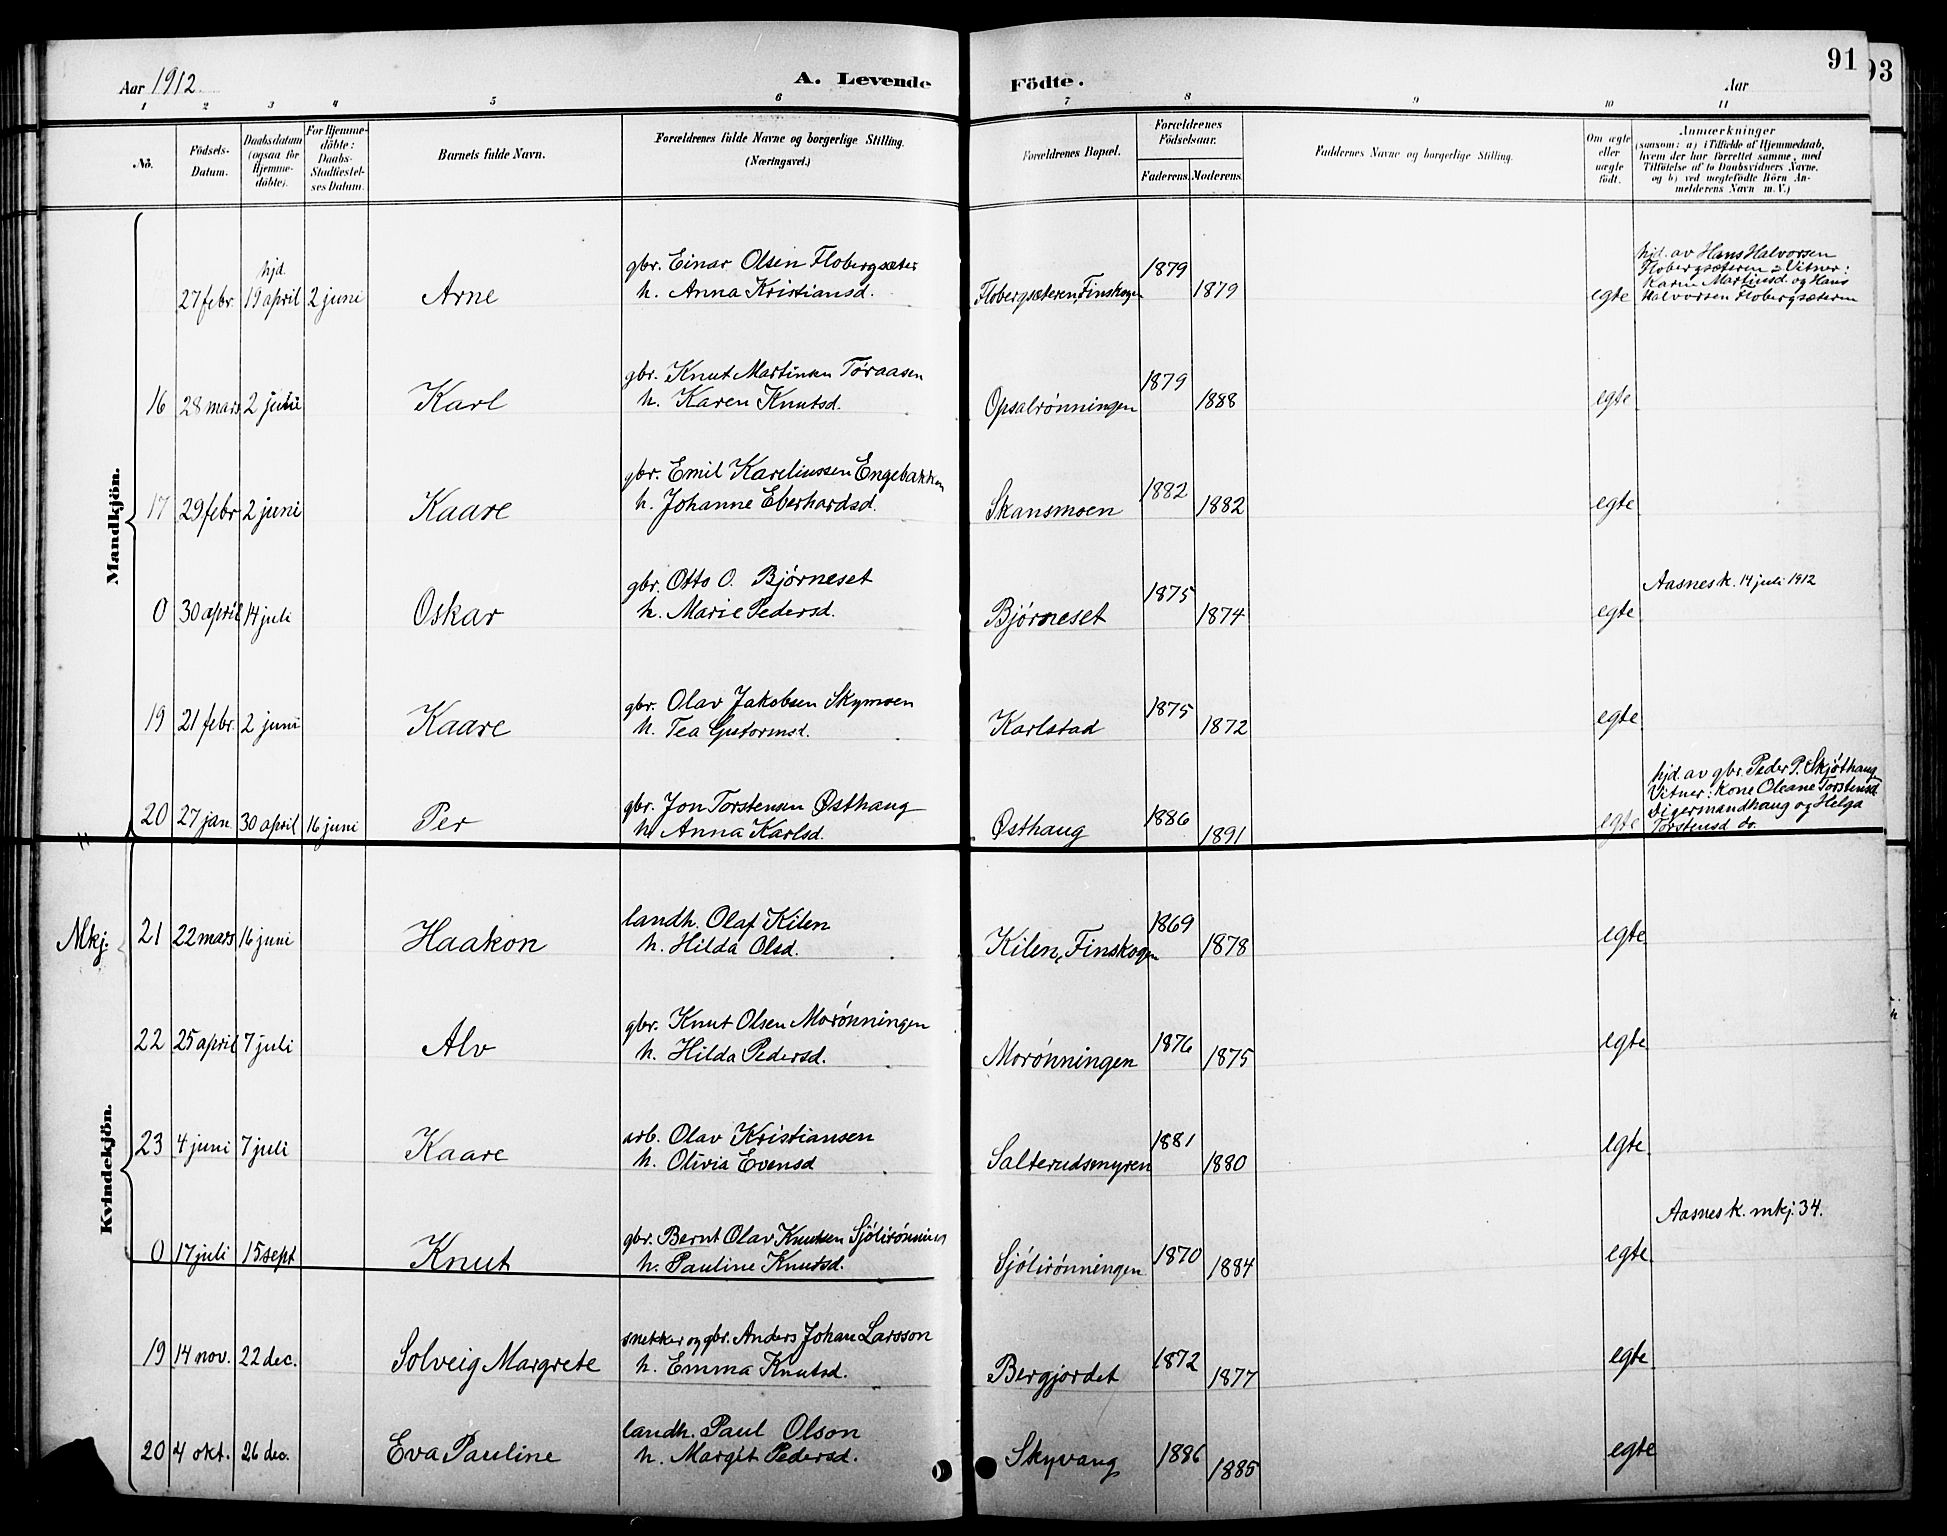 91
93
Aar 1912.
A. Levende Födte.
Aar
1 2 3 4 5 6 7 8 9 10 11
No.
Födsels-Datum.
Daabsdatum (ogsaa for Hjemme-döbte).
For Hjemme-döbte: Daabs-Stadfæstel-ses Datum.
Barnets fulde Navn.
Forældrenes fulde Navne og borgerlige Stilling. (Næringsvei.)
Forældrenes Bopæl.
Forældrenes Födselsaar.
Faderens. Moderens.
Faddernes Navne og borgerlige Stilling.
Om ægte eller uægte födt.
Anmærkninger
(saasom: a) i Tilfælde af Hjemmedaab,
hvem der har forrettet samme, med
Tilföielse af to Daabsvidners Navne.
og b) ved uægtefödte Börn An-
melderens Navn m. V.)
Mandkjön.
27 febr. hjd. 19 april 2 juni Arne gbr. Einar Olsen Flobergsæter
h. Anna Kristiansd. Flobergsæteren, Finskogen 1879 1879 egte
hjd. av Hans Halvorsen
Flobergsæteren. Vitner:
Karen Martinsd. og Hans
Halvorsen Flobergsæteren
16 28 mars 2 juni Karl gbr. Knut Martinsen Toraasen
h. Karen Knutsd. Opsalrønningen 1879 1888 egte
17 29 febr 2 juni Kaare gbr. Emil Kareliussen Engebakken
h. Johanne Eberhardsd. Skansmoen 1882 1882 egte
0 30 april 14 juli Oskar gbr. Otto O. Bjørneset
h. Marie Pedersd. Bjørneset 1875 1874 egte Aasnes k. 14 juli 1912
19 21 febr. 2 juni Kaare gbr. Olav Jakobsen Skymoen
h. Tea Gutormsd. Karlstad 1875 1872 egte
20 27 jan. 30 april 16 juni Per gbr. Jon Torstensen Østhaug
h. Anna Karlsd. Østhaug 1886 1891 egte
hjd. av gbr. Peder P. Skjøthaug
Vitner: Kone Oleane Torstensd.
Digermandhaug og Helga
Torstensd. do.
Mkj.
21 22 mars 16 juni Haakon landh. Olaf Kilen
h. Hilda Olsd. Kilen, Finskogen 1869 1878 egte
22 25 april 7 juli Alv gbr. Knut Olsen Morønningen
h. Hilda Pedersd. Morønningen 1876 1875 egte
Kvindekjön.
23 4 juni 7 juli Kaare arb. Olav Kristiansen
h. Olivia Evensd Salterudsmyren 1881 1880 egte
0 17 juli 15 sept Knut gbr. Bernt Olav Knutsen Sjølirønningen
h. Pauline Knutsd. Sjølirønningen 1870 1884 egte Aasnes k. mkj. 34.
19 14 nov. 22 dec. Solveig Margrete snekker og gbr. Anders Johan Larsson
h. Emma Knutsd. Bergjordet 1872 1877 egte
20 4 okt. 26 dec. Eva Pauline landh. Paul Olson
h. Margit Pedersd. Skyvang 1886 1885 egte